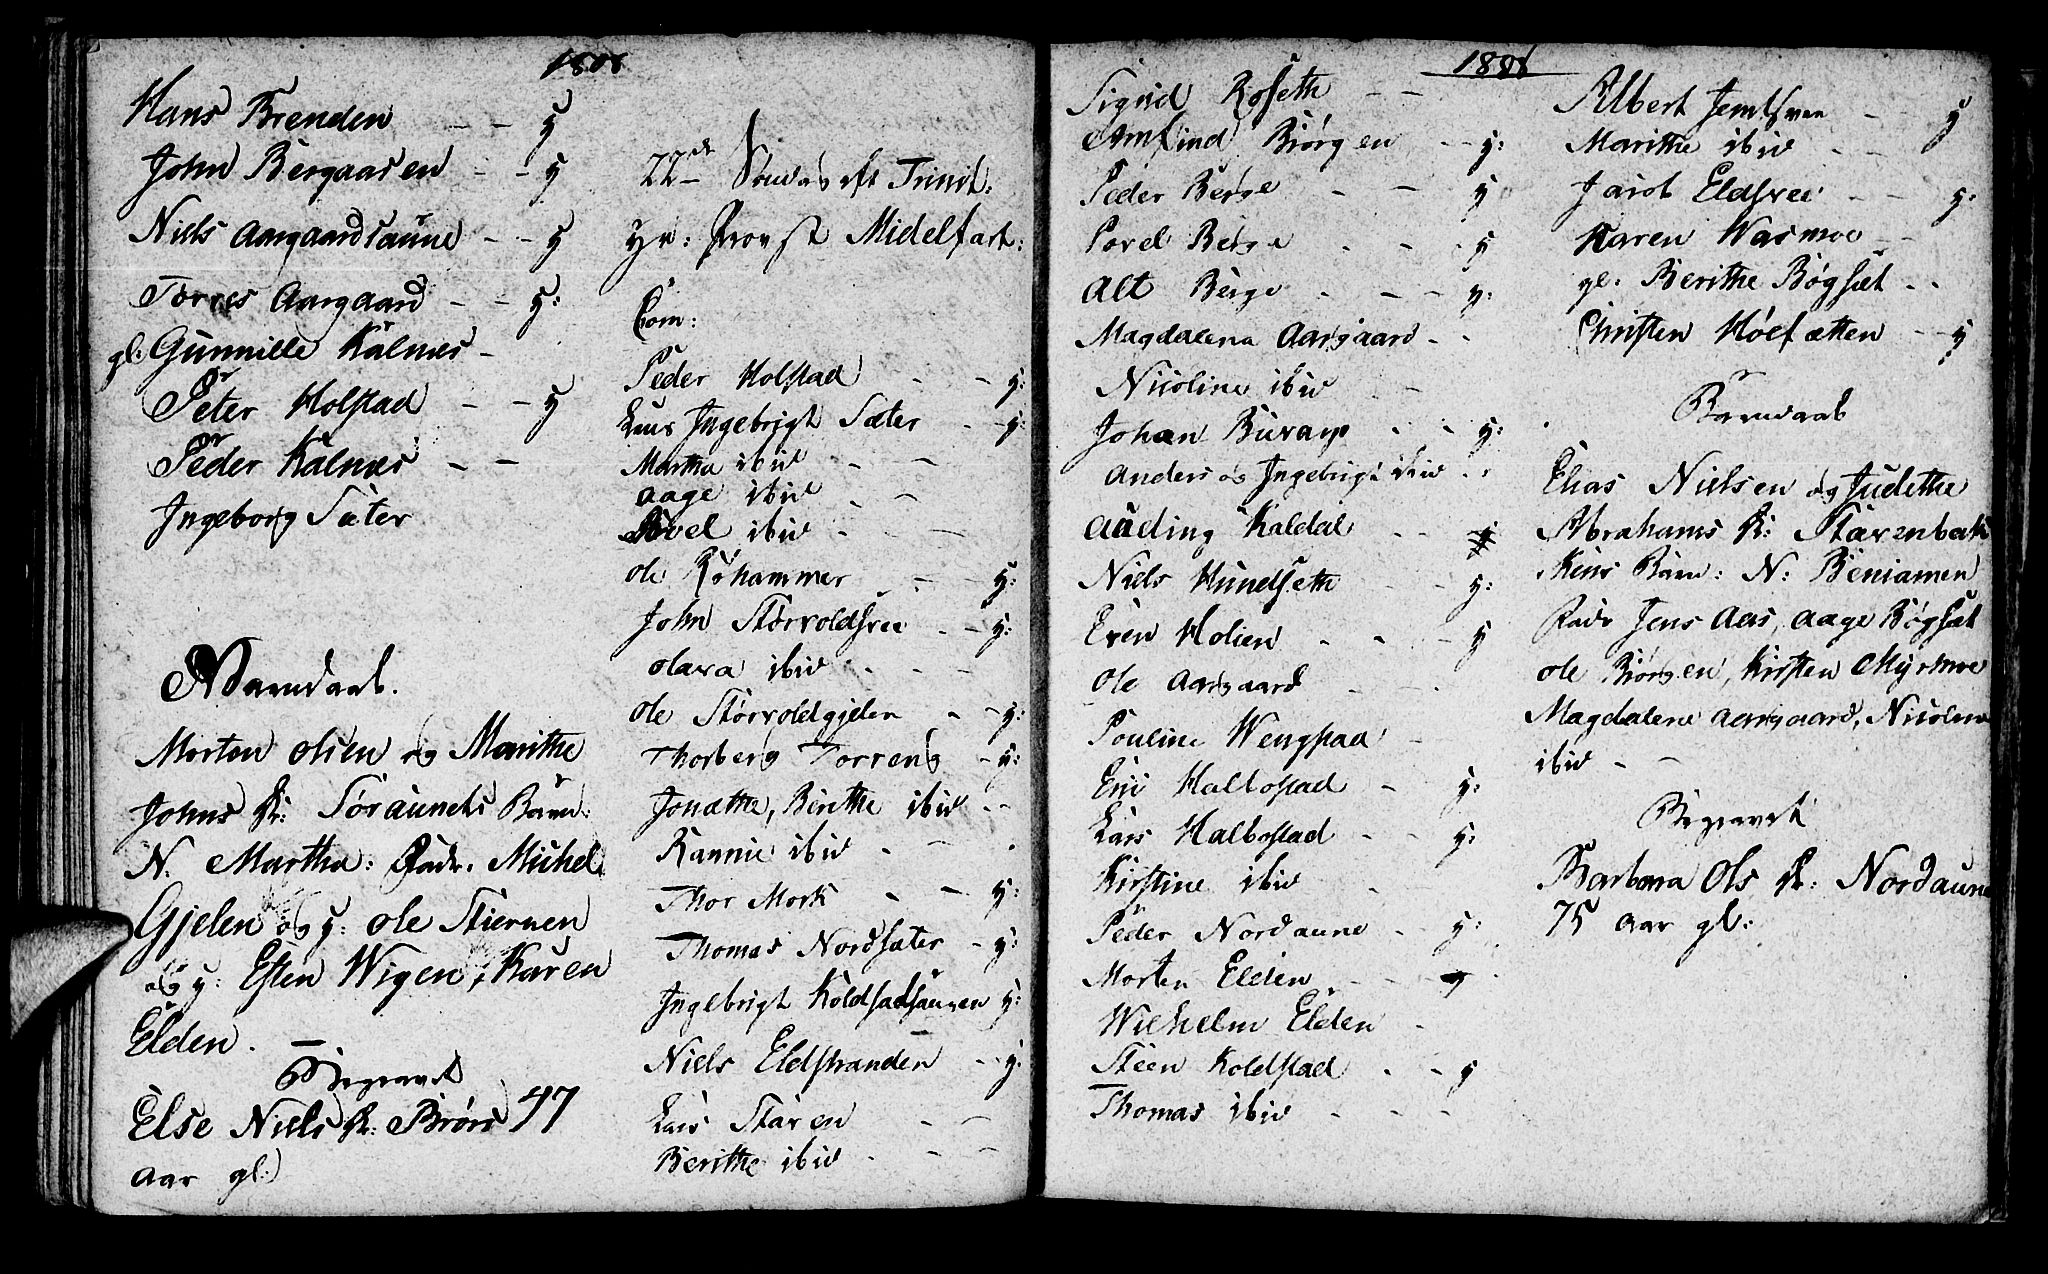 1808
Hans Brenden - - y
John Bergaasen - - y
Niels Aargaardsaune - - y
Torres Aargaard - - y:
gl: Gunnille Kalnes -
Peter Holstad - - y
Peder Kalnes - -
Ingeborg Sæter
Barndaab.
Morten Olsen og Marithe
Johns K: Søraunets Barn:
N. Martha: Fadr. Michel
Gjelen og y: Ole Stiernen
og y: Esten Wigen, Karen
Elden. -
Begravet
Else Niels K: Brøns 47
Aar gl:
22de Søndag eft Trinit:
Hr: Provst Midelfart:
Com:
Peder Holstad - - y:
Ingebrigt Sæter - - y:
Martha ibid - -
Aage ibid - -
Povel ibid - -
Ole Røhammer - - y:
John Storvoldsvee - - y:
Olava ibid - - -
Ole Storvoldgjelen - - y:
Thorberg Torreng - y:
Jonætha, Berithe ibid - -
Rannie ibid - - -
Thor Mork - - y:
Thomas Nordsæter - y:
Ingebrigt Koldsadsaunen y:
Niels Eldstranden - - y:
Lars Staren - -
Berithe ibid - - -
1808
Sigrid Roseth - -
Arnfind Biørgen - - y:
Peder Berge - - y
Povel Berge - - y
Alt Berge - - - y:
Magdalena Aargaard - -
Nicoline ibid -
Johan Buraas - - y:
Anders og Ingebrigt ibid - -
Auding Kaldal - - y
Niels Hundseth - - y:
Even Holien - - y
Ole Aargaard - -
Pouline Wengstad -
Eric Halbostad - y:
Lars Halbostad - - y:
Kirstine ibid -
Peder Nordaune - y:
Morten Elden - - y
Wilhelm Elden -
Steen Koldstad - - y
Thomas ibid - - -
Albert Jemtsvee - y
Marithe ibid - -
Jacob Eldsvee - - y:
Karen Wasmoe - -
gl: Berithe Bøgsæt - -
Christen Hølsætten - - y
Barndaab
Elias Nielsen og Judithe
Abrahams K: Starenbak
Barn: N: Beniamen
Fadr Jens Aas, Aage Bøgsæt
Ole Biørgen, Kirsten Myrmoe
Magdalene Aargaard, Nicoline
ibid - -
Begravet
Barbara Ols K: Nordaune
75 Aar gl: